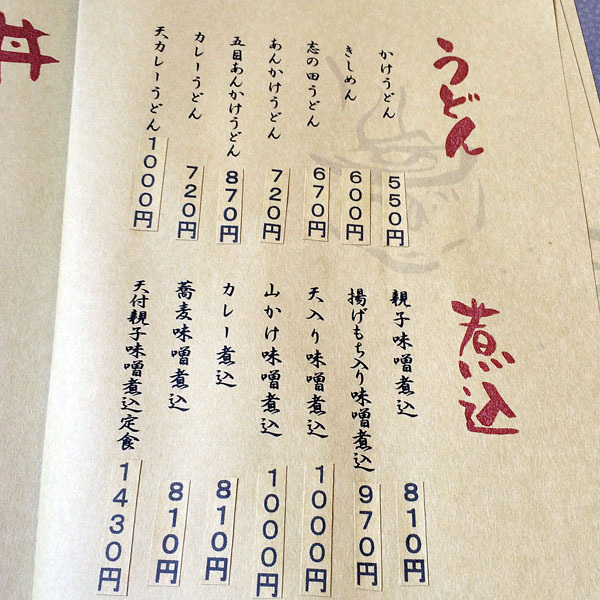 うどん
かけうどん 550円
きしめん 600円
志の田うどん 670円
あんかけうどん 720円
五目あんかけうどん 870円
カレーうどん 720円
天カレーうどん 1000円
煮込
親子味噌煮込 810円
揚げもち入り味噌煮込 970円
天入り味噌煮込 1000円
山かけ味噌煮込 1000円
カレー煮込 810円
蕎麦味噌煮込 810円
天付親子味噌煮込定食 1430円
丼